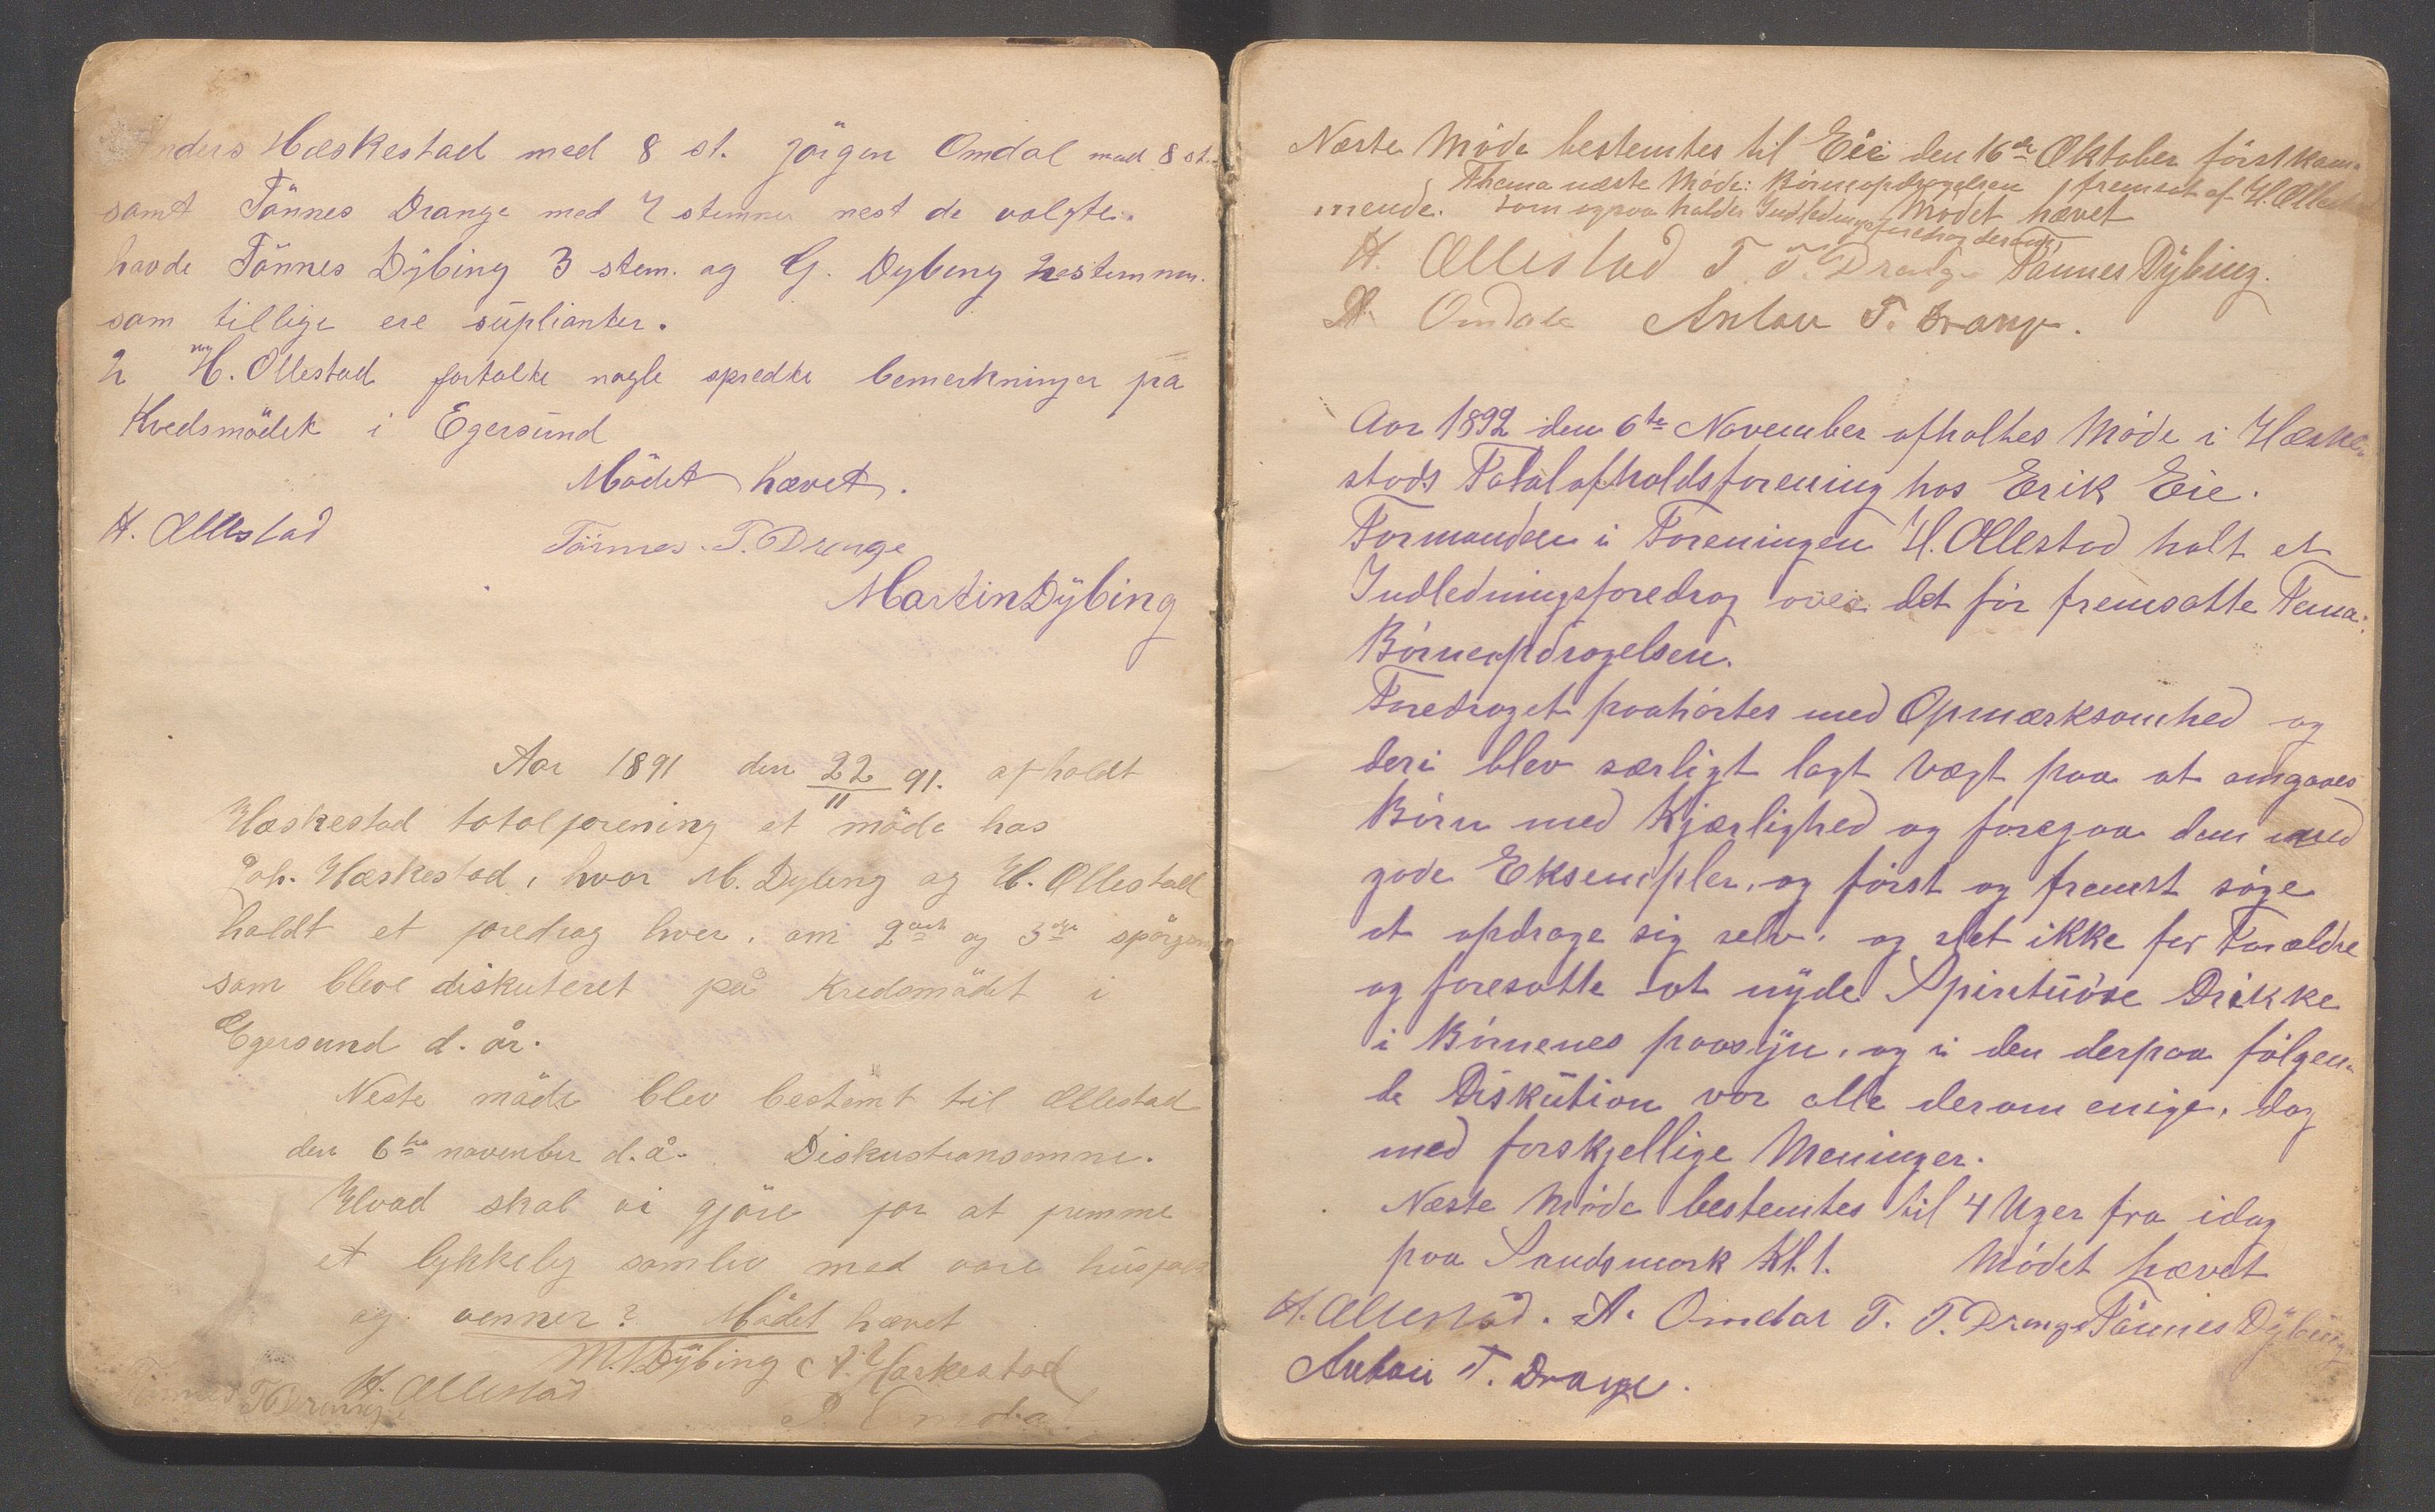 Anders Hæskestad med 8 st. Jörgen Omdal med 8 st.
samt Tönnes Drange med 7 stemmer nest de valgte
havde Tönnes Dÿbing 3 stem. og G. Dybing 2 stemmer.
som tillige ere suplianter.
2 H. Ollestad fortalte nogle spredte bemerkninger på
Kredsmödet i Egersund
Mödet hævet.
H. Ollestad Tönnes T. Drange
Martin Dÿbing
Aar 1891 den 22/11 91. afholdt
Hæskestad totalforening et möde hos
Joh. Hæskestad, hvor M. Dybing og H. Ollestad
holdt et foredrag hver, om 2det og 3die
som bleve diskuteret på Kredsmödet i
Egersund d. år.
Neste möde blev bestemt til Ollestad
den 6te november d. å. Diskustionsemne.
Hvad skal vi gjöre for at fremme
et lykkelig samliv med vore
og venner? Mödet hævet
M. Dÿbing A. Hæskestad
Tönnes T Drange H. Ollestad
Omdal
Næste Møde bestemtes til Eie den 16de Oktober förstkom-
Thema næste Møde: Børneopdragelsen fremsat af H. Ollestad
mende. som ogsaa holder Indledningsforedrag derom, Mødet hævet
H. Ollestad T. T. Drange Tønnes Dÿbing.
A. Omdal Anton T. Drange.
Aar 1892 den 6te November afholtes Møde i Hæske-
stads Totalafholdsforening hos Erik Eie.
Formanden i Foreningen H. Ollestad holt et
Indledningsforedrag over det før fremsatte Tema:
Børneopdragelsen.
Foredraget paahørtes med Opmærksomhed og
deri blev særligt lagt Vægt paa at omgaaes
Børn med Kjærlighed og foregaa dem med
gode Eksempler, og først og fremst søge
at opdrage sig selv, og slet ikke for Forældre
og foresatte at nÿde Spirituøse Drikke
i Børnenes paasÿn, og i den derpaa følgen-
de Diskution var alle derom enige, dog
med forskjellige Meninger.
Næste Møde bestemtes til 4 Uger fra idag
paa Sandsmark Kl. 1. Mødet hævet
H. Ollestad. A. Omdal T. T. Drange Tønnes Dÿbing
Anton T. Drange.